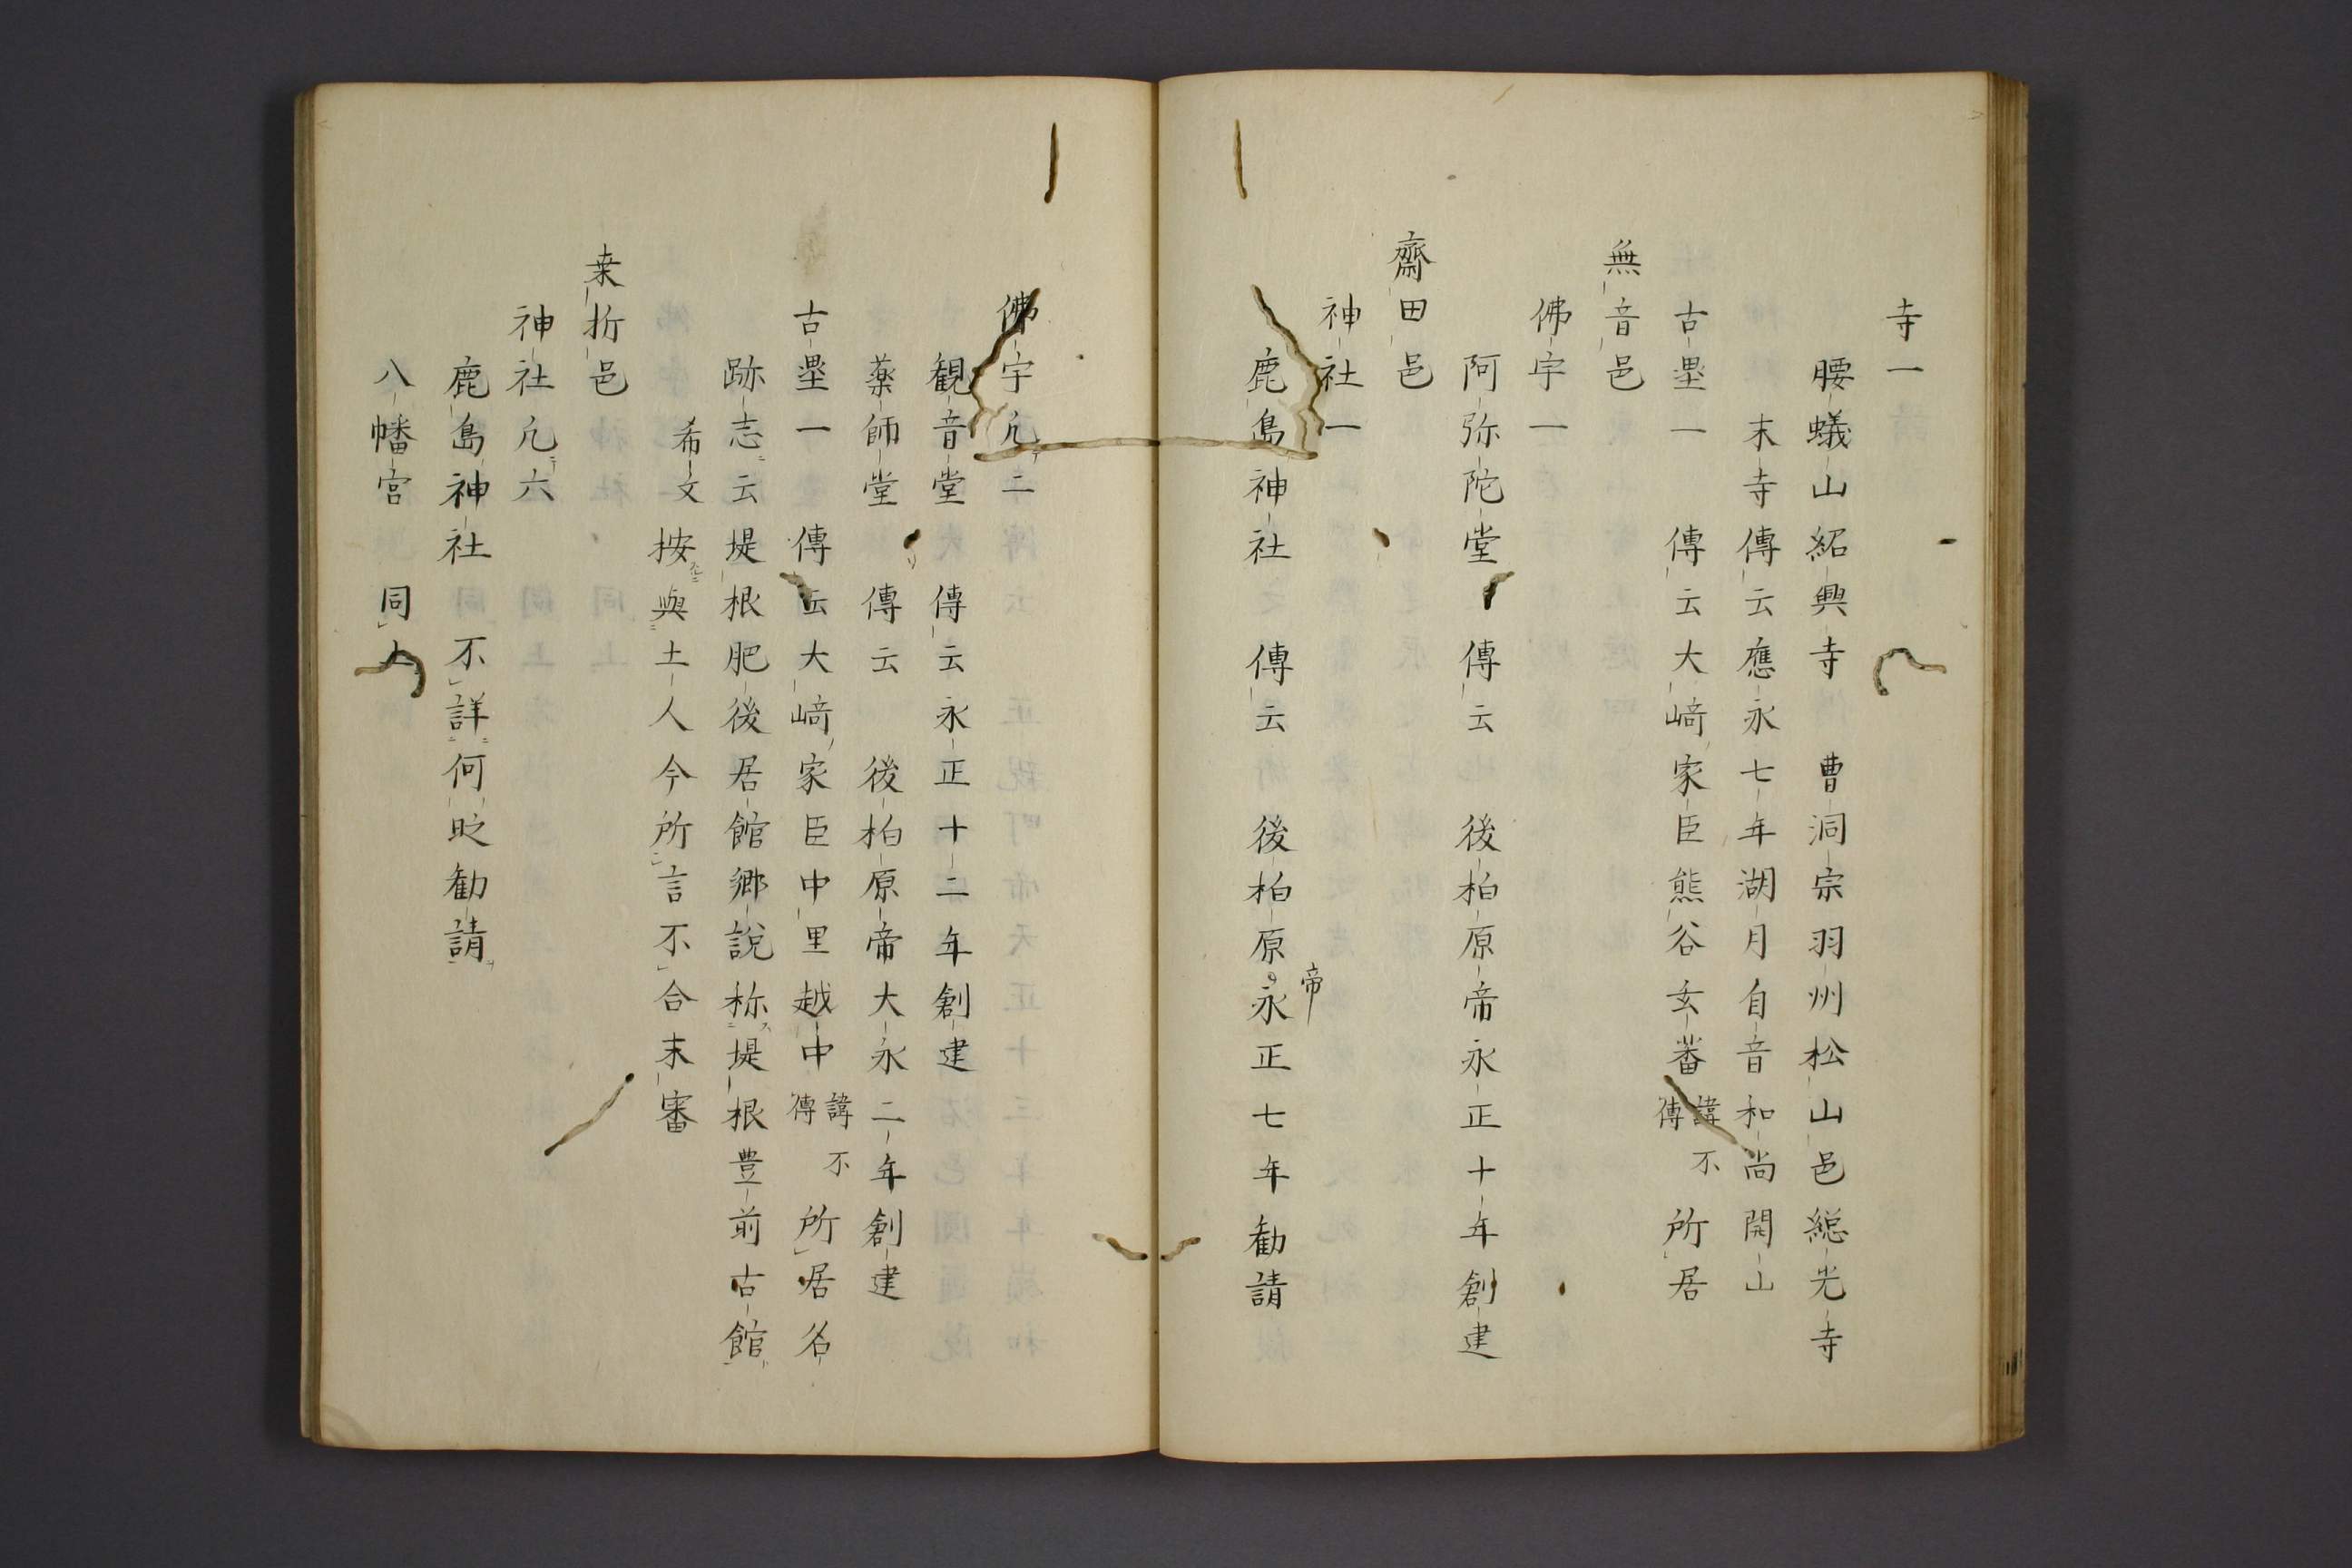 寺一
腰蟻山紹興寺 曹洞宗羽州松山邑総光寺
末寺傳云應永七年湖月自音和尚開山
古壘一 傳云大﨑家臣熊谷玄蕃諱不傳所居
無音邑
佛宇一
阿弥陀堂 傳云 後柏原帝永正十年創建
齋田邑
神社一
鹿島神社 傳云 後柏原帝永正七年勧請
佛宇凡二
観音堂 傳云永正十二年創建
薬師堂 傳云 後柏原帝大永二年創建
古壘一 傳云大﨑家臣中里越中諱不傳所居名
跡志云堤根肥後居館郷説称堤根豊前古館
希文按與土人今所言不合未審
桒折邑
神社凡六
鹿島神社 不詳何時勧請
八幡宮 同上